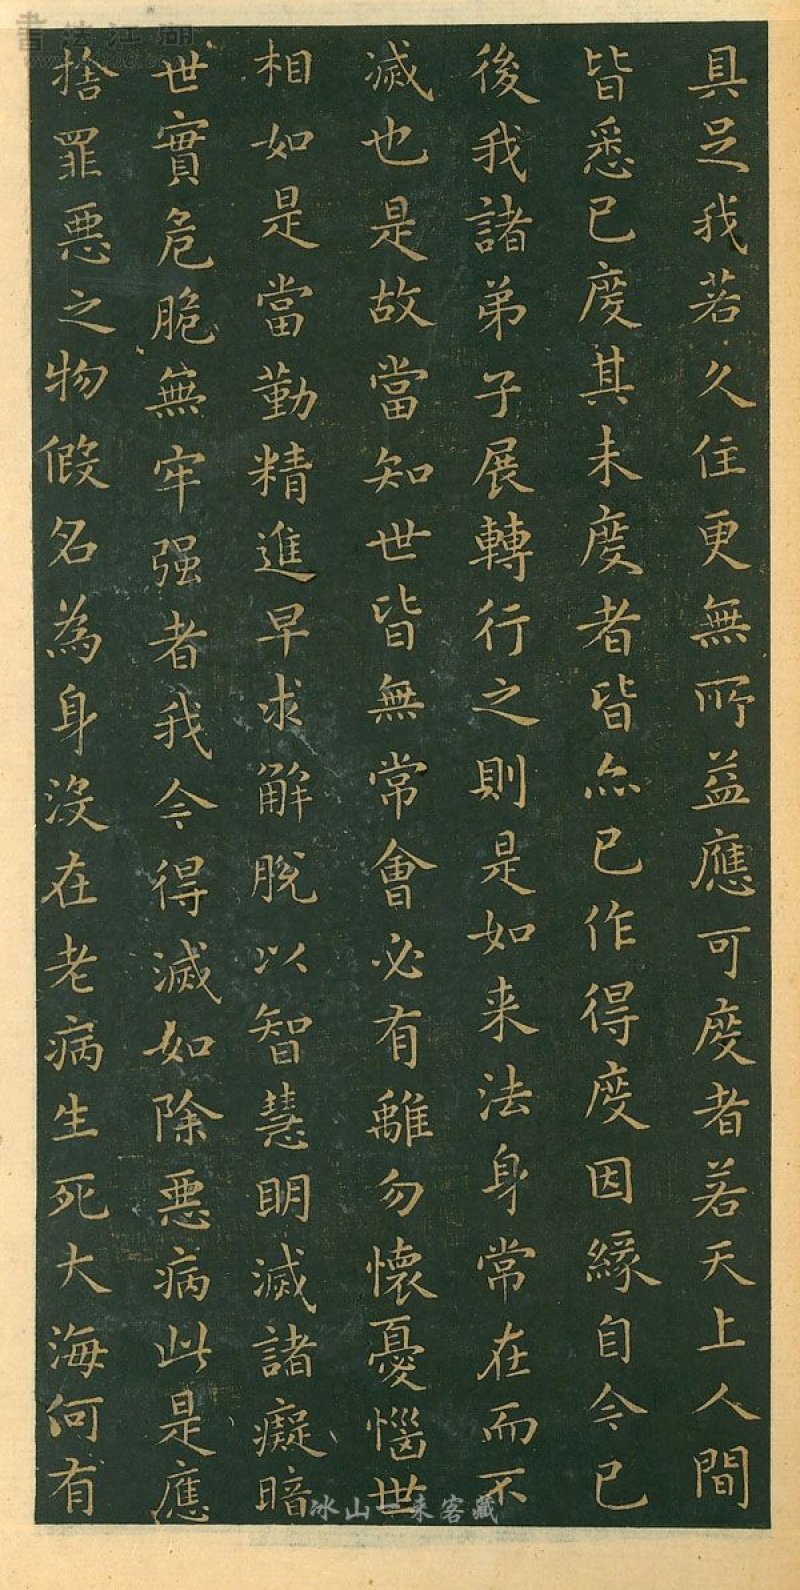 具足我若久住更無所益應可度者若天上人間
皆悉已度其未度者皆亦已作得度因緣自今已
後我諸弟子展轉行之則是如来法身常在而不
滅也是故當知世皆無常會必有離勿懷憂惱世
相如是當勤精進早求解脫以智慧明滅諸癡暗
世實危脆無牢强者我今得滅如除惡病此是應
捨罪惡之物假名為身沒在老病生死大海何有
書法江湖
冰山一来客藏